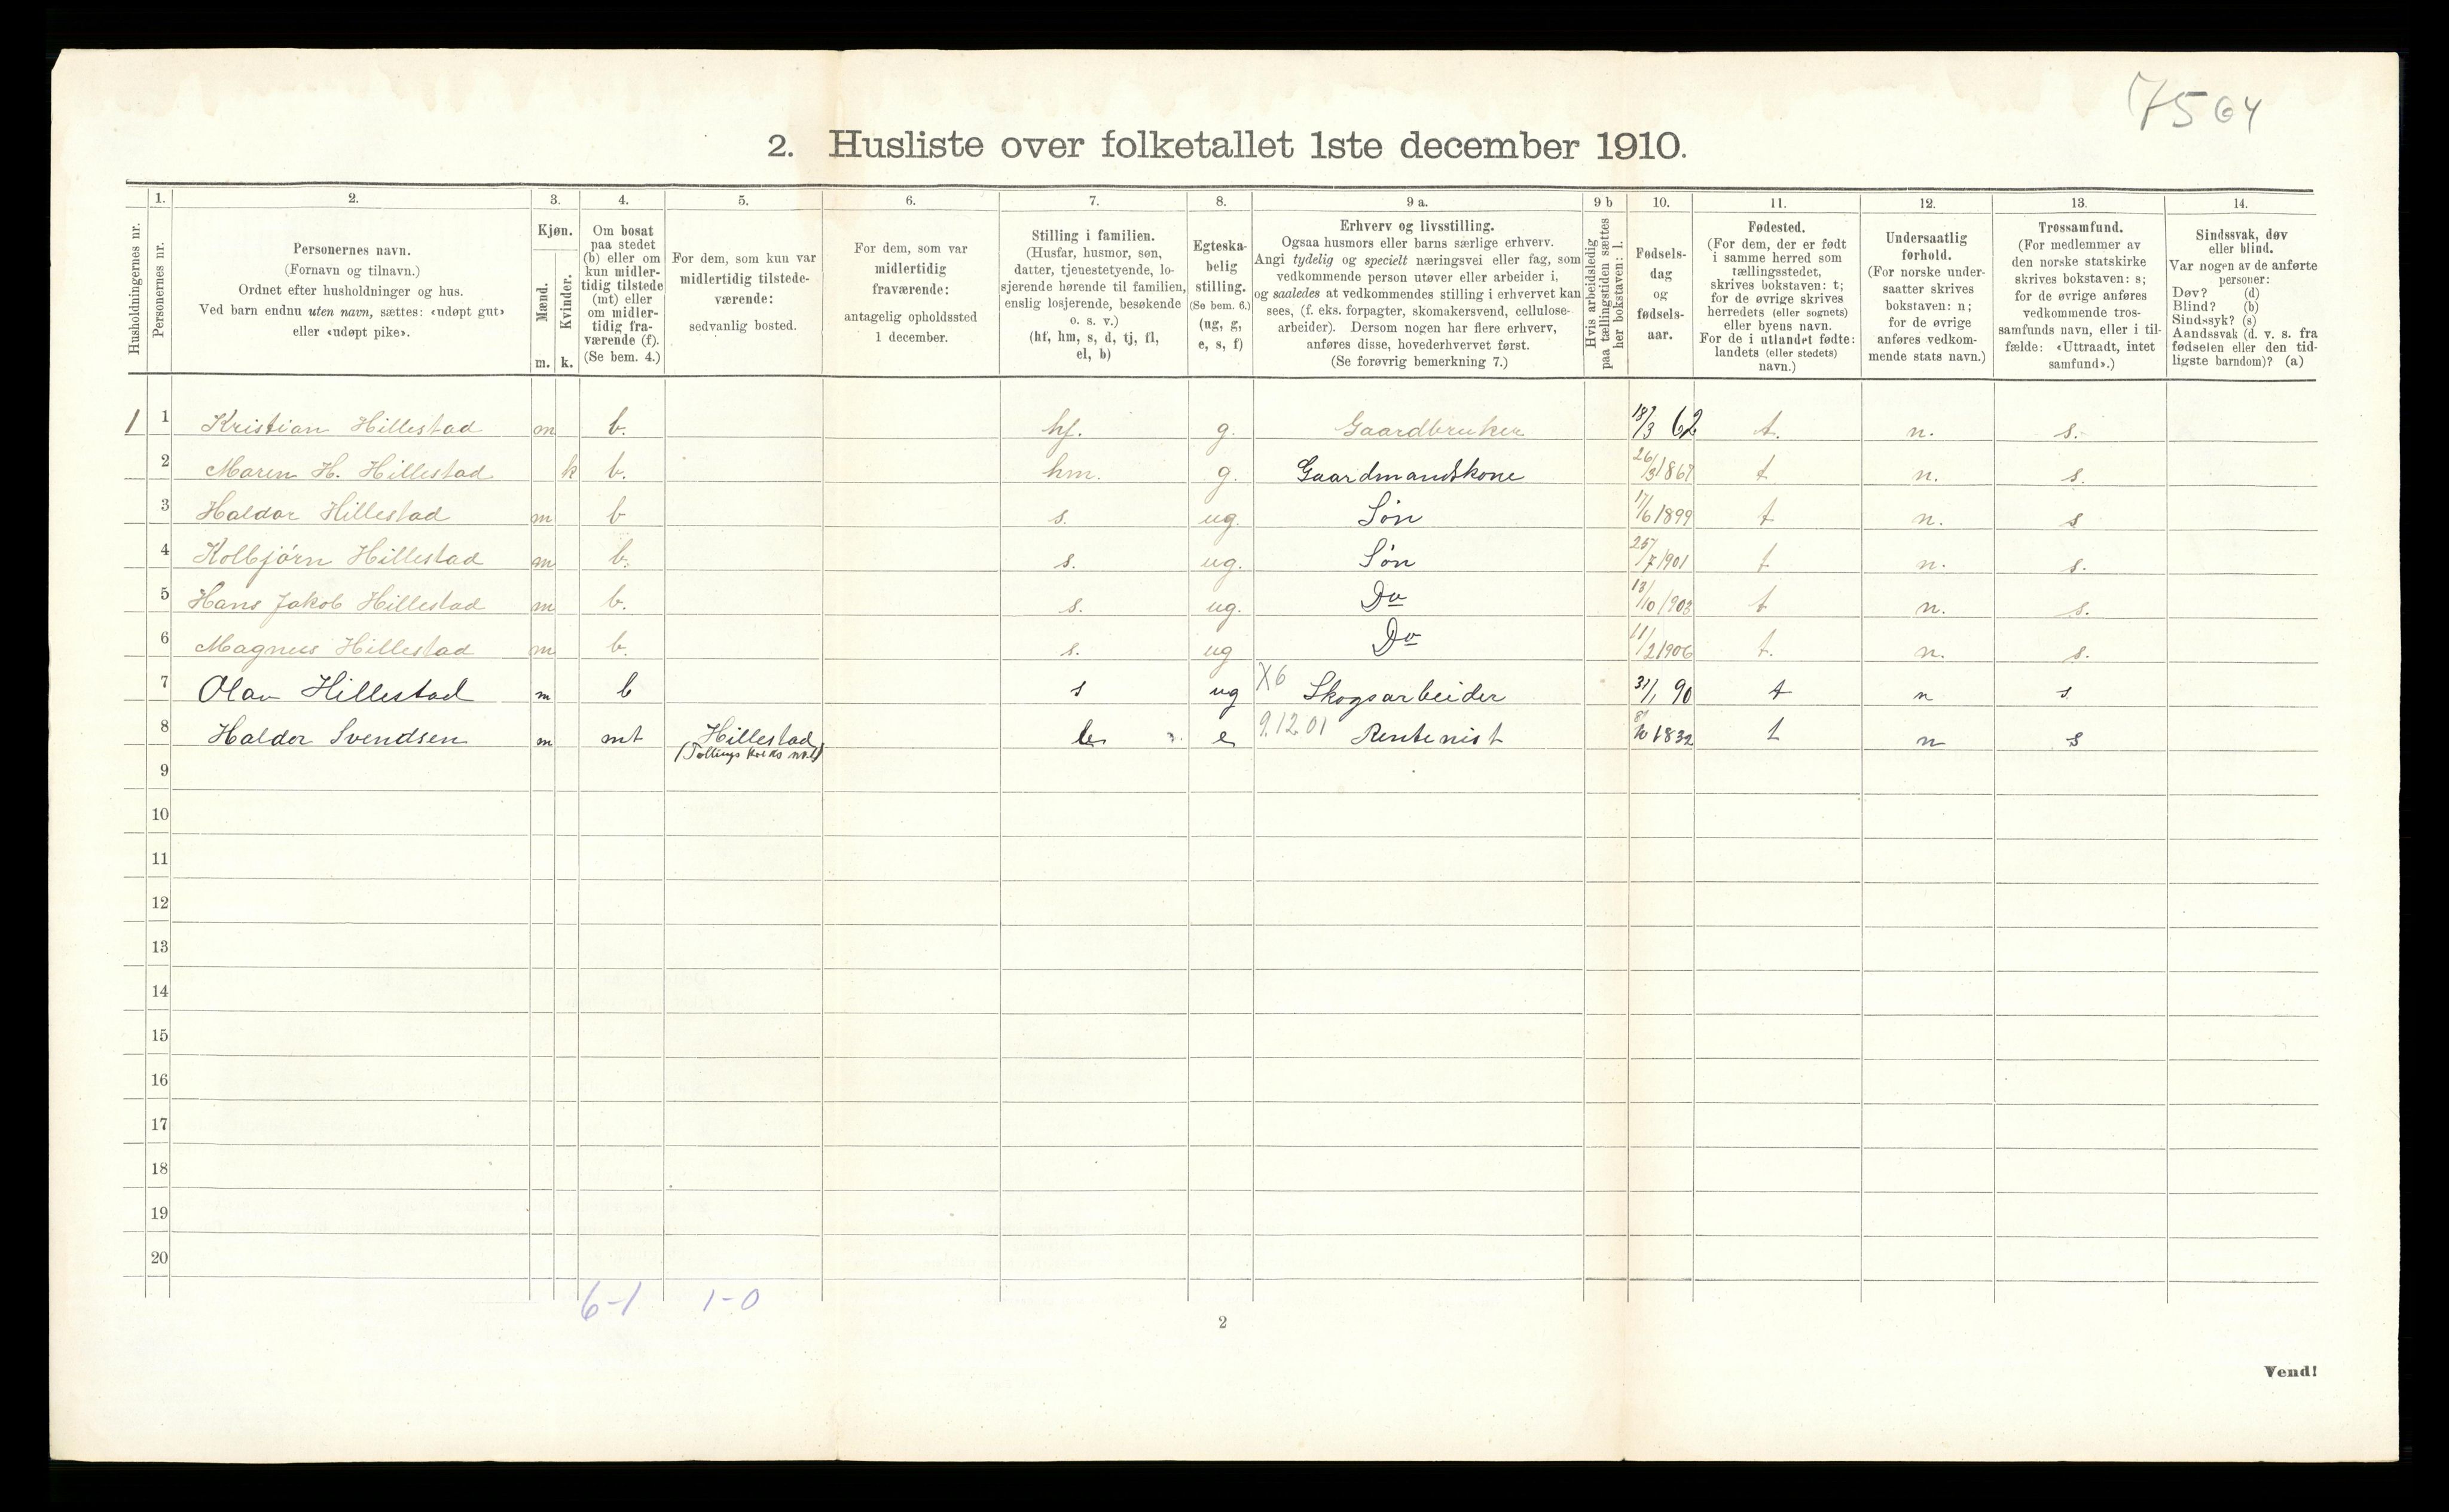 7564
2. Husliste over folketallet 1ste december 1910.
Husholdningernes nr.
1.
Personernes nr.
2.
Personernes navn.
(Fornavn og tilnavn.)
Ordnet efter husholdninger og hus.
Ved barn endnu uten navn, sættes: «udøpt gut»
eller «udøpt pike».
3.
Kjøn.
Mænd.
m.
Kvinder.
k.
4.
Om bosat
paa stedet
(b) eller om
kun midler-
tidig tilstede
(mt) eller
om midler-
tidig fra-
værende (f).
(Se bem. 4.)
5.
For dem, som kun var
midlertidig tilstede-
værende:
sedvanlig bosted.
6.
For dem, som var
midlertidig
fraværende:
antagelig opholdssted
1 december.
7.
Stilling i familien.
(Husfar, husmor, søn,
datter, tjenestetyende, lo-
sjerende hørende til familien,
enslig losjerende, besøkende
o. s. v.)
(hf, hm, s, d, tj, fl,
el, b)
8.
Egteska-
belig
stilling.
(Se bem. 6.)
(ug, g,
e, s, f)
9 a.
Erhverv og livsstilling.
Ogsaa husmors eller barns særlige erhverv.
Angi tydelig og specielt næringsvei eller fag, som
vedkommende person utøver eller arbeider i,
og saaledes at vedkommendes stilling i erhvervet kan
sees, (f. eks. forpagter, skomakersvend, cellulose-
arbeider). Dersom nogen har flere erhverv,
anføres disse, hovederhvervet først.
(Se forøvrig bemerkning 7.)
9 b
Hvis arbeidsledig
paa tællingstiden sættes
her bokstaven: l.
10.
Fødsels-
dag
og
fødsels-
aar.
11.
Fødested.
(For dem, der er født
i samme herred som
tællingsstedet,
skrives bokstaven: t;
for de øvrige skrives
herredets (eller sognets)
eller byens navn.
For de i utlandet fødte:
landets (eller stedets)
navn.)
12.
Undersaatlig
forhold.
(For norske under-
saatter skrives
bokstaven: n;
for de øvrige
anføres vedkom-
mende stats navn.)
13.
Trossamfund.
(For medlemmer av
den norske statskirke
skrives bokstaven: s;
for de øvrige anføres
vedkommende tros-
samfunds navn, eller i til-
fælde: «Uttraadt, intet
samfund».)
14.
Sindssvak, døv
eller blind.
Var nogen av de anførte
personer:
Døv? (d)
Blind? (b)
Sindssyk? (s)
Aandssvak (d. v. s. fra
fødselen eller den tid-
ligste barndom)? (a)
1 1 Kristian Hillestad m b. hf. g. Gaardbruker 18/3 62 t. n. s.
2 Maren H. Hillestad k b. hm. g. Gaardmandskone 26/3 1867 t n. s.
3 Haldor Hillestad m b s. ug. Søn 17/6 1899 t n. s
4 Kolbjørn Hillestad m b. s. ug. Søn 25/7 1901 t n. s.
5 Hans Jakob Hillestad m b. s. ug. Do 13/10 1903 t n. s.
6 Magnus Hillestad m b. s. ug Do 11/2 1906 t. n. s.
7 Olav Hillestad m b s ug X6 Skogsarbeider 31/1 90 t n s
8 Haldor Svendsen m mt Hillestad b e 9.12.01 Rentenist 8/10 1832 t n s
(Tællings kreds nr. 1)
9
10
11
12
13
14
15
16
17
18
19
20
6-1 1-0
2
Vend!